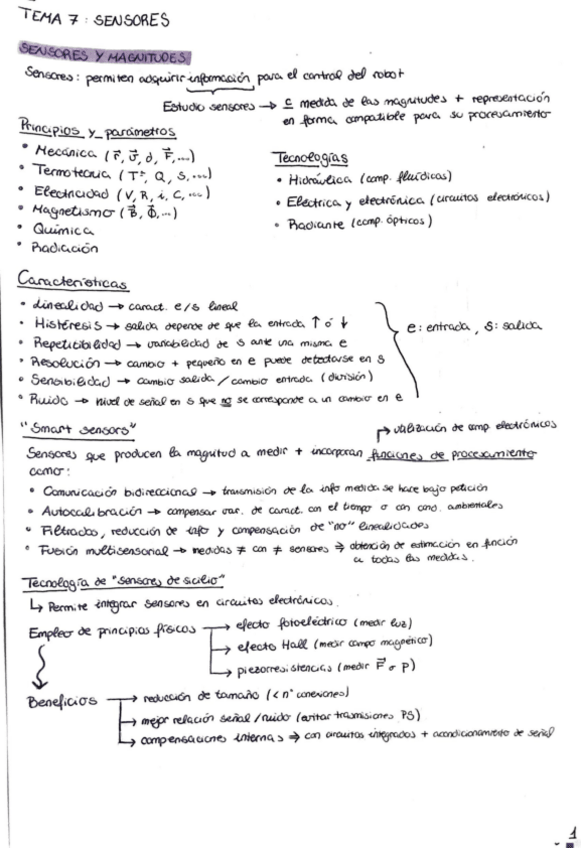 TEMA 7: SENSORES
SENSORES Y MAGNITUDES
Sensores: permiten adquirir información para el control del robot
Estudio sensores → c medida de las magnitudes + representación
en forma compatible para su procesamiento
Principios y parámetros
• Mecánica (r, v, d, F, ...)
• Termotecnia (Tª, Q, S, ...)
• Electricidad (V, R, i, C, ...)
• Magnetismo (B, Φ, ...)
• Química
• Radiación
Tecnologías
• Hidráulica (comp. fluídicos)
• Electrica y electrónica (circuitos electrónicos)
• Radiante (comp. ópticos)
Características
• Linealidad → caract. e/s lineal
• Histéresis → salida depende de que la entrada ↑ ó ↓
• Repetitibilidad → variabilidad de s ante una misma e
• Resolución → cambio + pequeño en e puede detectarse en s
• Sensibilidad → cambio salida / cambio entrada (división)
• Ruido → nivel de señal en s que no se corresponde a un cambio en e
e: entrada, s: salida
"Smart sensors"
→ utilización de comp. electrónicos
Sensores que producen la magnitud a medir + incorporan funciones de procesamiento
como:
• Comunicación bidireccional → transmisión de la info medida se hace bajo petición
• Autocalibración → compensar var. de caract. con el tiempo o con cond. ambientales
• Filtrados, reducción de info y compensación de "no" linealidades
• Fusión multisensorial → medidas ≠ con ≠ sensores ⇒ obtención de estimación en función
a todas las medidas.
Tecnología de "sensores de silicio"
↳ Permite integrar sensores en circuitos electrónicos.
Empleo de principios físicos → efecto fotoeléctrico (medir luz)
→ efecto Hall (medir campo magnético)
→ piezorresistencias (medir F o p)
Beneficios → reducción de tamaño (< nº conexiones)
→ mejor relación señal/ruido (evitar trasmisiones PS)
→ compensaciones internas ⇒ con circuitos integrados + acondicionamiento de señal
1